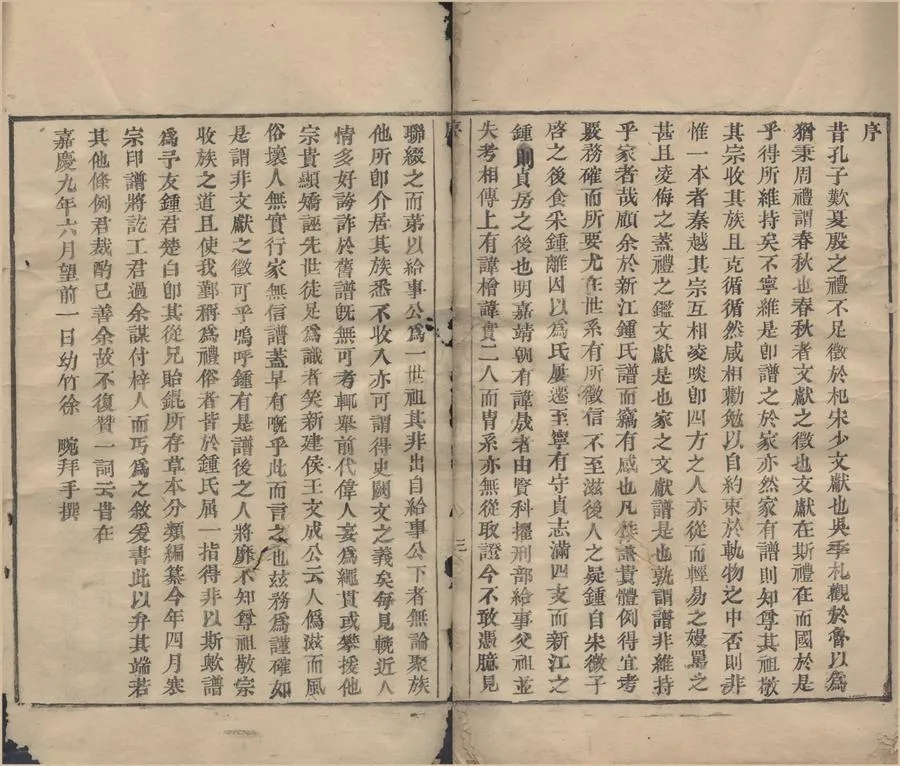 序
昔孔子歎夏殷之禮不足徵於杞宋少文獻也吳季札觀於魯以爲
猶秉周禮謂春秋也春秋者文獻之徵也文獻在斯禮在而國於是
乎得所維持矣不寧維是卽譜之於家亦然家有譜則知尊其祖敬
其宗收其族且克循循然咸相勸勉以自約束於軌物之中否則非
惟一本者秦越其宗互相凌啖卽四方之人亦從而輕易之嫚罵之
甚且凌侮之蓋禮之鑑文獻是也家之文獻譜是也孰謂譜非維持
乎家者哉顧余於新江鍾氏譜而竊有感也凡譔譜貴體例得宜考
覈務確而所要尤在世系有所徵信不至滋後人之疑鍾自宋微子
啓之後食采鍾離因以爲氏屢遷至寧有守貞志滿四支而新江之
鍾則貞房之後也明嘉靖朝有諱戣者由賢科擢刑部給事父祖並
失考相傳上有諱檜諱實二人而冑系亦無從取證今不敢憑臆見
聯綴之而第以給事公爲一世祖其非出自給事公下者無論聚族
他所卽介居其族悉不收入亦可謂得史闕文之義矣每見輓近人
情多好誇詐於舊譜旣無可考輒舉前代偉人妄爲繩貫或攀援他
宗貴顯矯誣先世徒足爲識者笑新建侯王文成公云人僞滋而風
俗壞人無實行家無信譜蓋早有嘅乎此而言之也茲務爲謹確如
是謂非文獻之徵可乎嗚呼鍾有是譜後之人將靡不知尊祖敬宗
收族之道且使我鄞稱爲禮俗者皆於鍾氏屈一指得非以斯歟譜
爲予友鍾君楚白卽其從兄貽錕所存草本分類編纂今年四月寒
宗印譜將訖工君過余謀付梓人而丐爲之敘爰書此以弁其端若
其他條例君裁酌已善余故不復贊一詞云昔在
嘉慶九年六月望前一日幼竹徐 畹拜手撰
序
三